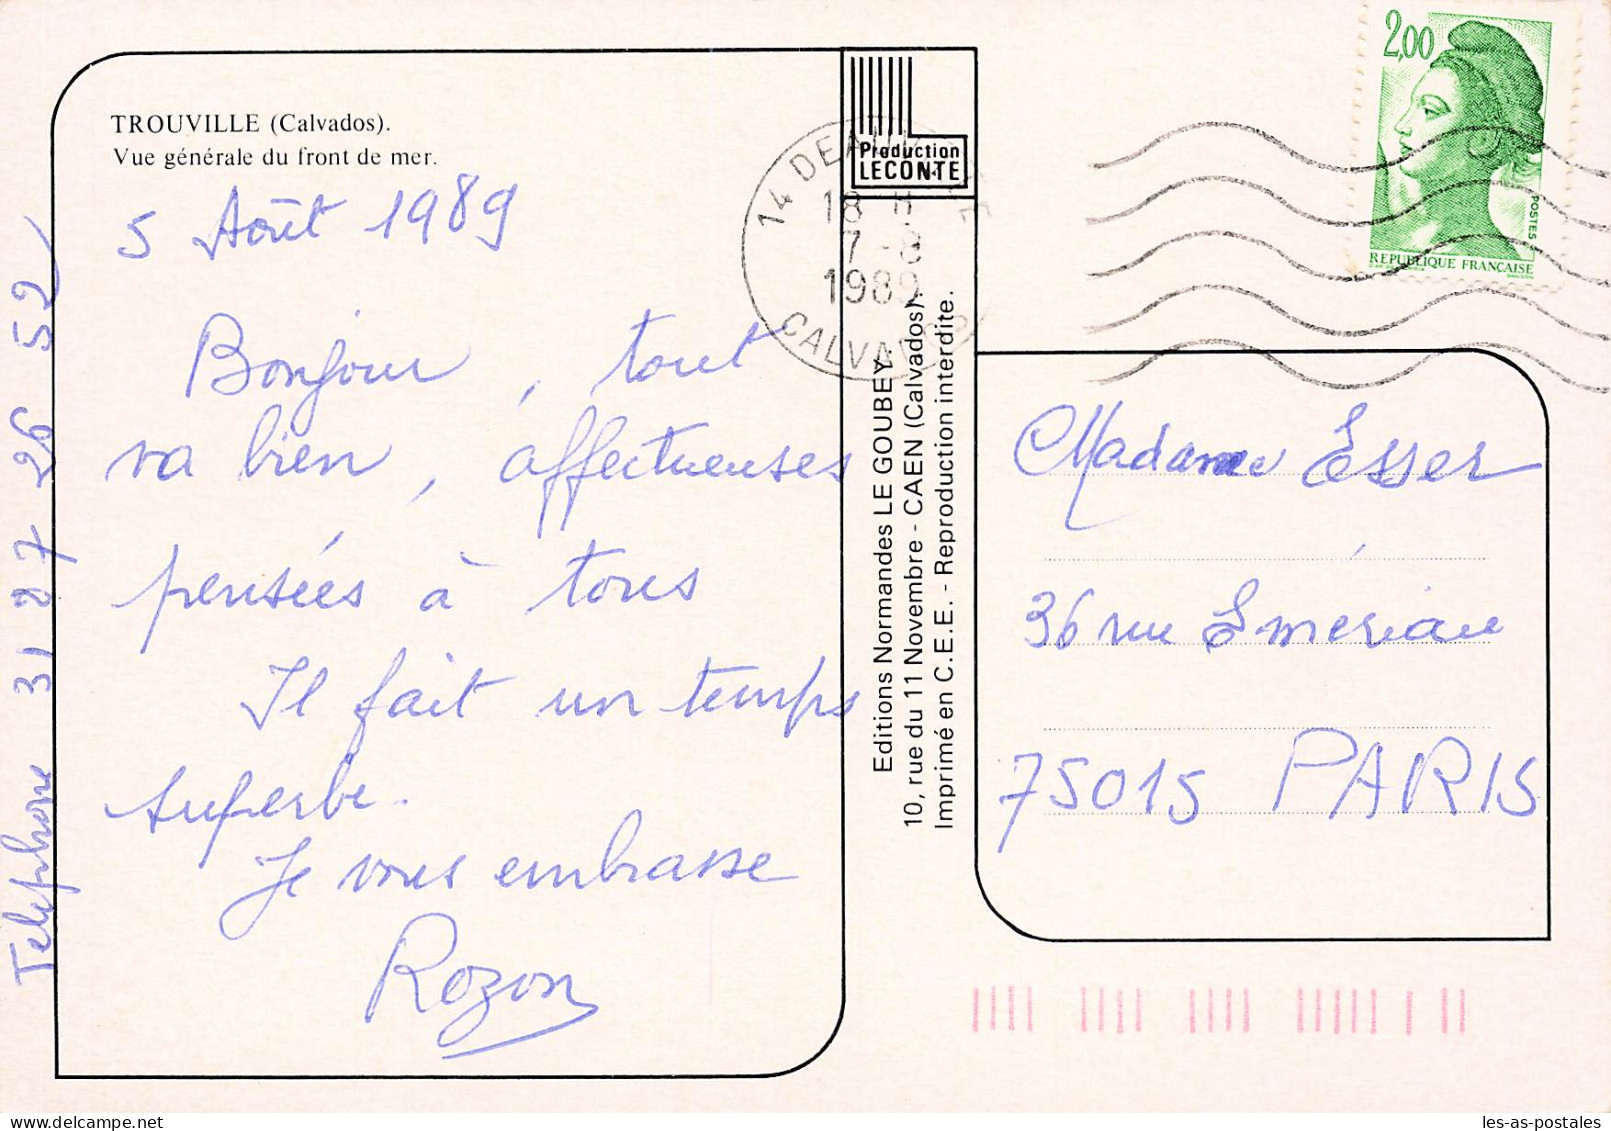 TROUVILLE (Calvados).
Vue générale du front de mer.
5 Août 1989
Bonjour, tout
va bien, affectueuses
pensées à tous
Il fait un temps
superbe.
Je vous embrasse
Rozon
Telephone 31 27 26 52
Production
LECONTE
14 DEAUVILLE
18 H
7-8
1989
CALVADOS
Editions Normandes LE GOUBEY
10, rue du 11 Novembre - CAEN (Calvados)
Imprimé en C.E.E. - Reproduction interdite.
2,00
POSTES
REPUBLIQUE FRANÇAISE
Madame Esser
36 rue Emeriau
75015 PARIS
les-as-postales